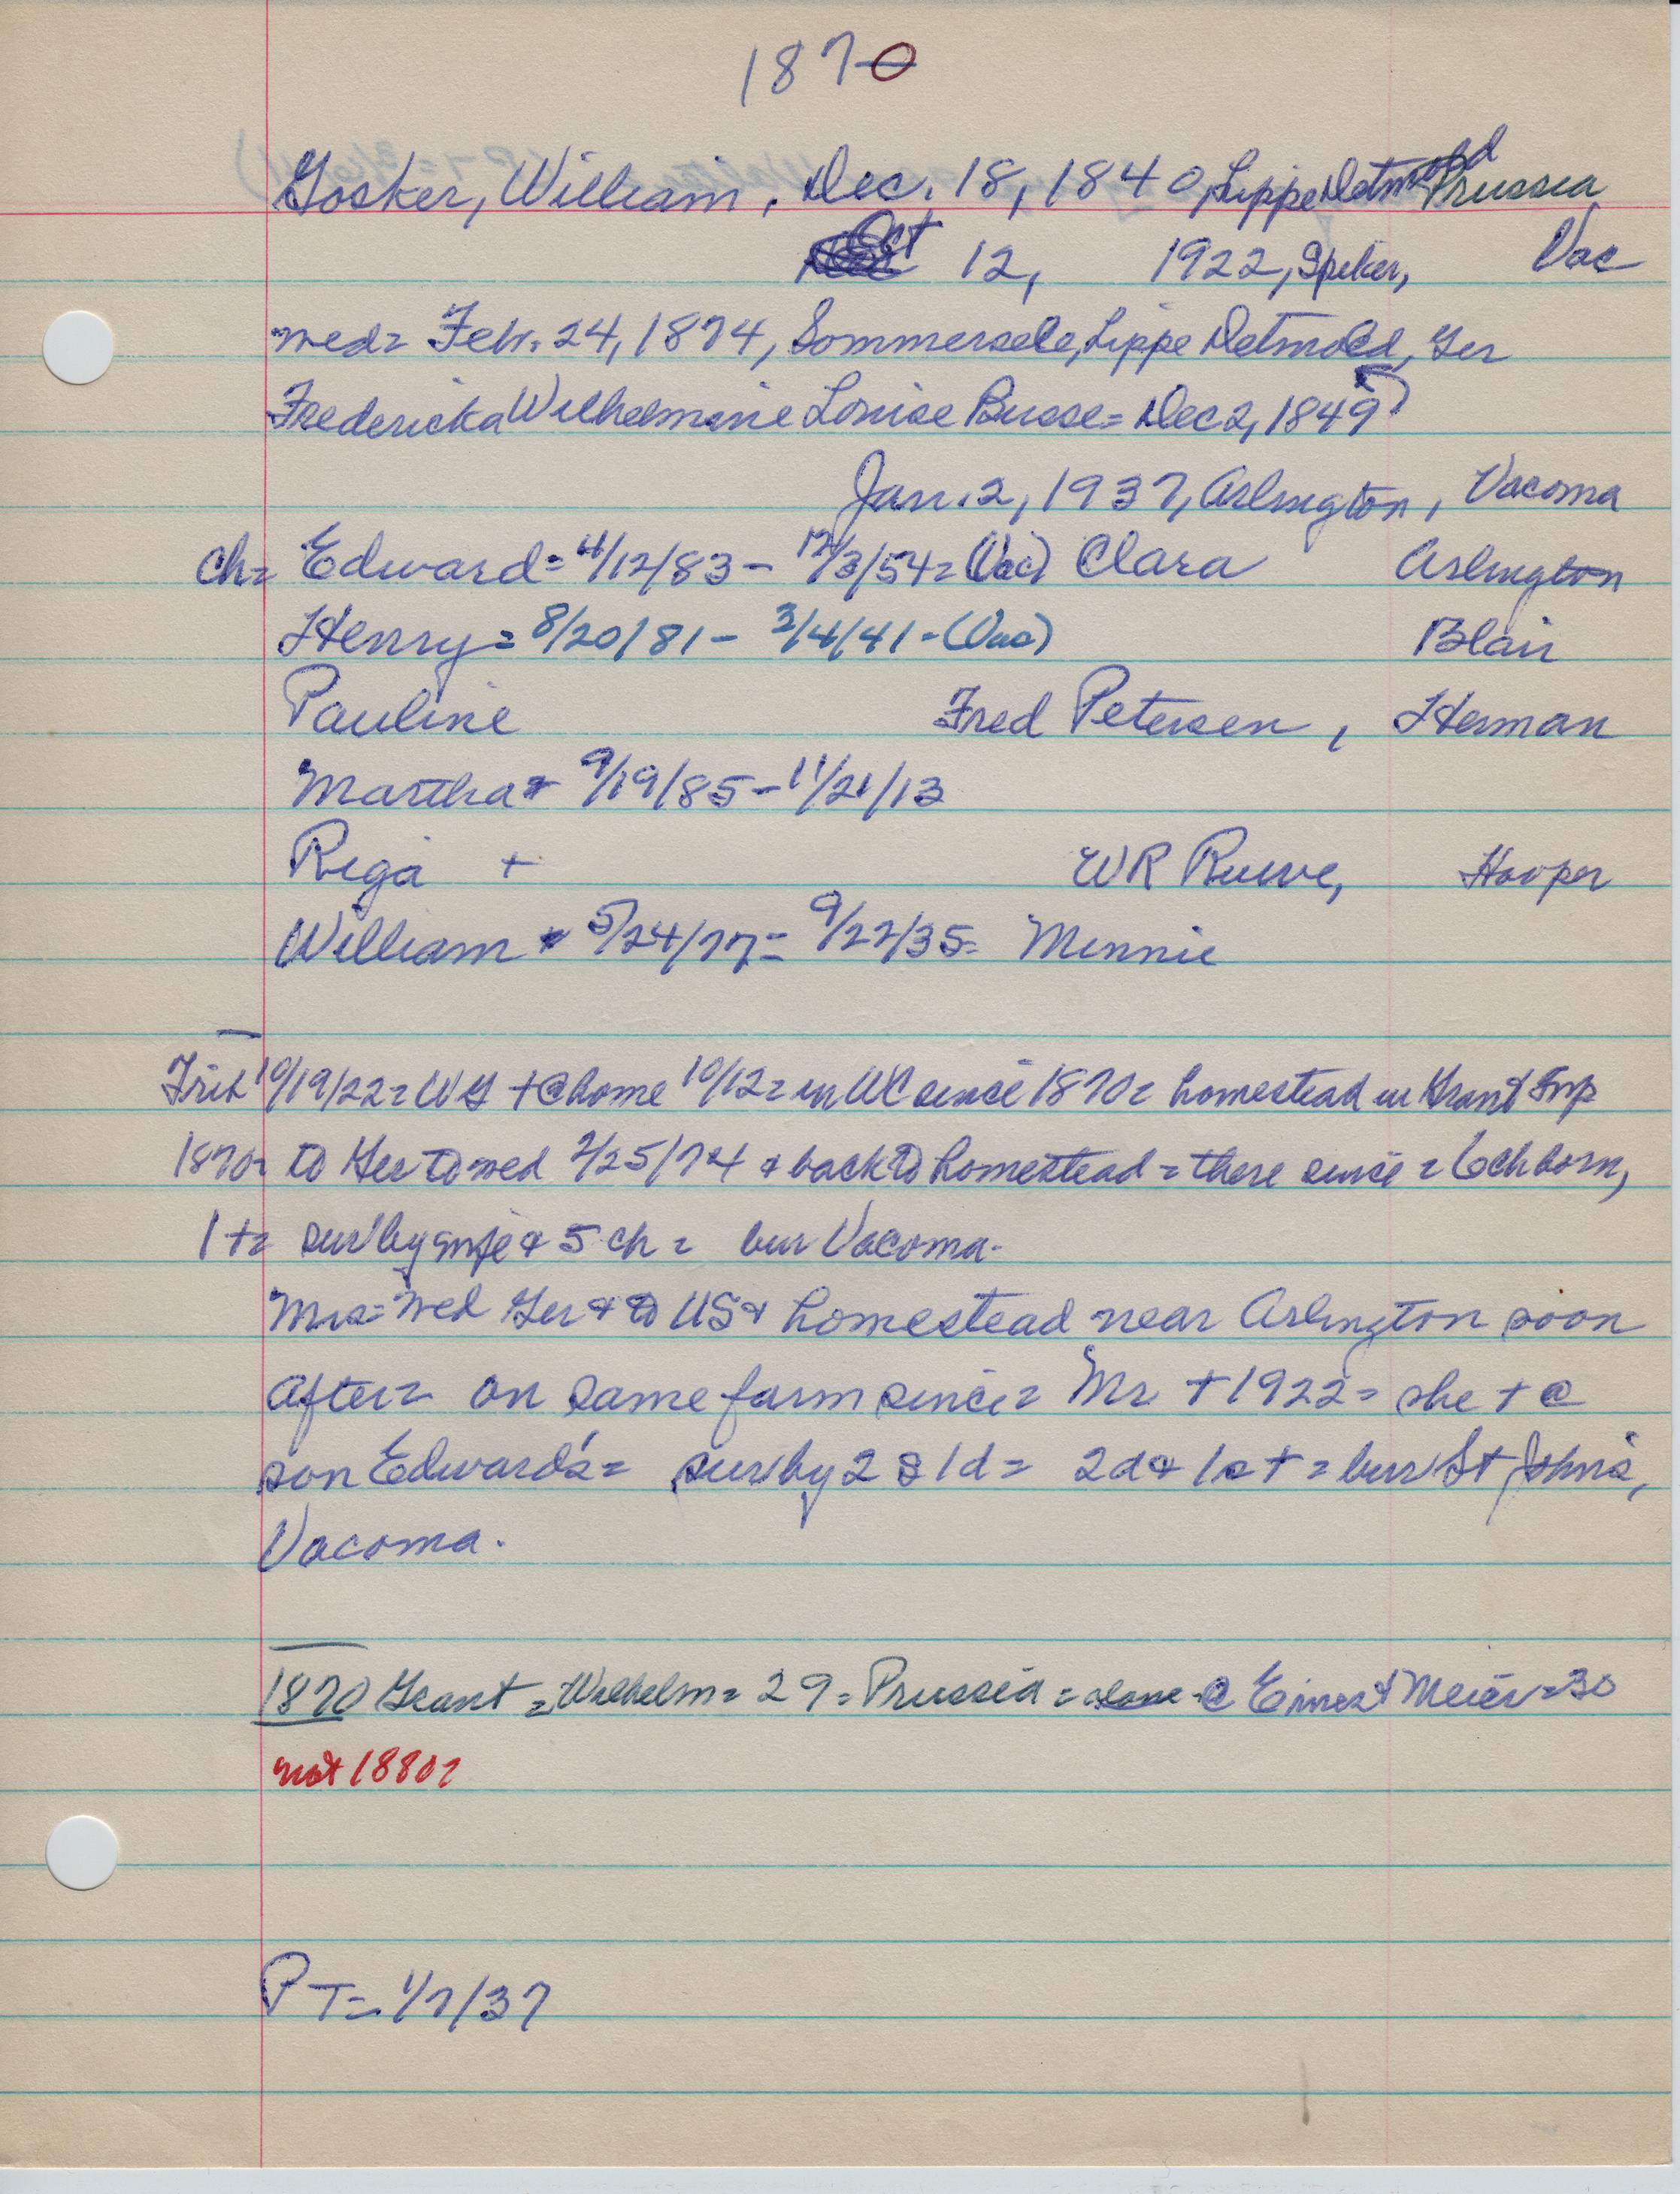 1870
Gosker, William, Dec. 18, 1840, Lippe Detmold Prussia
Oct 12, 1922, Spiker, Vac
wed= Febr. 24, 1874, Sommersele, Lippe Detmold, Ger
Fredericka Wilhelmine Louise Busse= Dec 2, 1849
Jan. 2, 1937, Arlington, Vacoma
ch= Edward= 4/12/83 - 12/3/54= (Vac) Clara Arlington
Henry= 8/20/81 - 3/4/41 - (Vac) Blair
Pauline Fred Petersen, Herman
Martha + 9/19/85 - 11/21/13
Rega + WR Ruwe, Hooper
William + 5/24/77= 9/22/35= Minnie
Trib 10/19/22= WG + @ home 10/12= in WC since 1870= homestead in Grant Tmp
1870= to Ger to wed 2/25/74 & back to homestead = there since = 6 ch born,
1 += sur by wife & 5 ch = bur Vacoma.
Mrs= wed Ger & to US & homestead near Arlington soon
after= on same farm since= Mr. + 1922= she + @
son Edward's= sur by 2 s 1 d= 2 d & 1 s + = bur St John's,
Vacoma.
1870 Grant = Wilhelm= 29= Prussia = alone - @ Ernest Meier=30
not 1880?
PT= 1/7/37